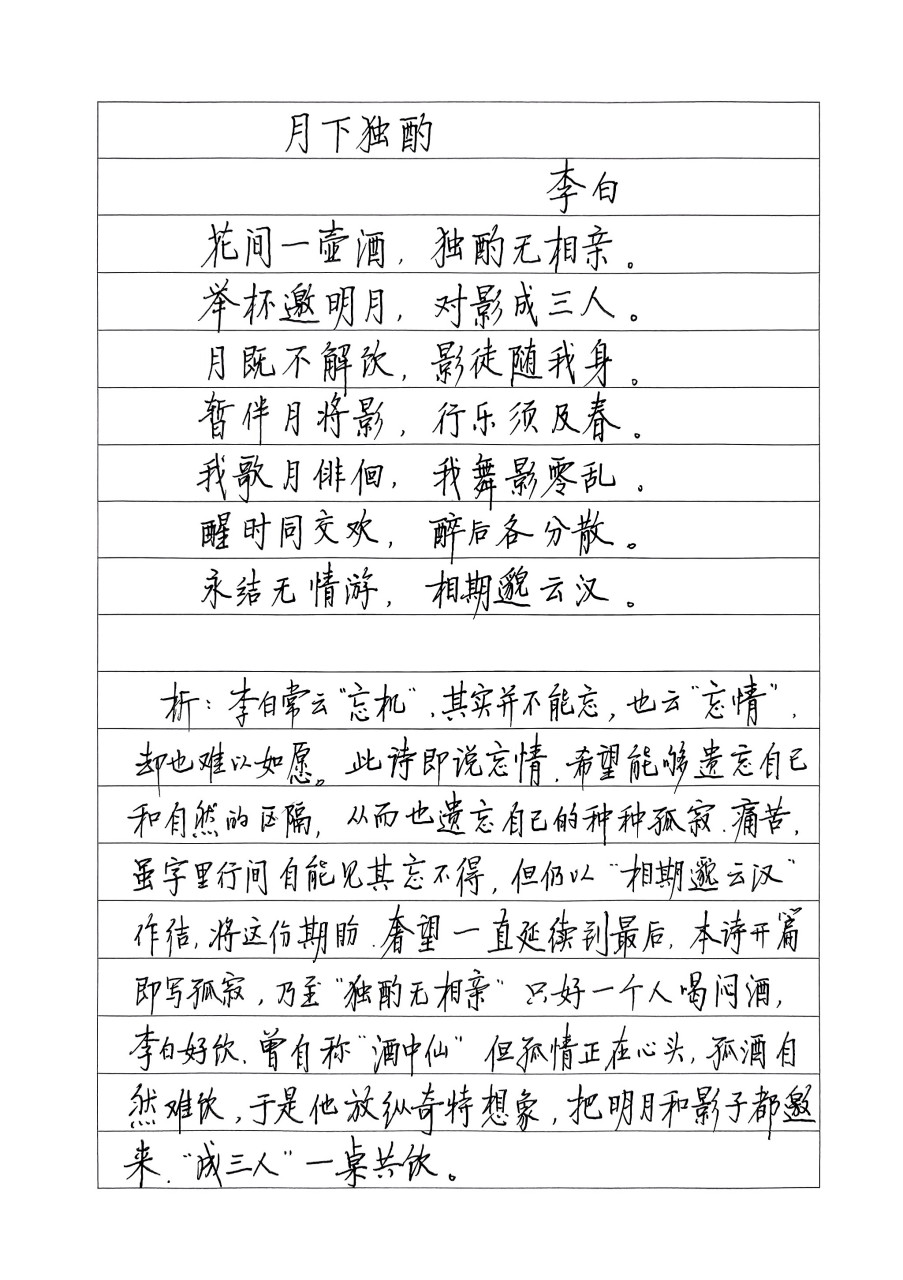 月下独酌
李白
花间一壶酒，独酌无相亲。
举杯邀明月，对影成三人。
月既不解饮，影徒随我身。
暂伴月将影，行乐须及春。
我歌月徘徊，我舞影零乱。
醒时同交欢，醉后各分散。
永结无情游，相期邈云汉。
析：李白常云“忘机”，其实并不能忘，也云“忘情”，
却也难以如愿。此诗即说忘情，希望能够遗忘自己
和自然的区隔，从而也遗忘自己的种种孤寂、痛苦，
虽字里行间自能见其忘不得，但仍以“相期邈云汉”
作结，将这份期盼、奢望一直延续到最后，本诗开篇
即写孤寂，乃至“独酌无相亲”只好一个人喝闷酒，
李白好饮、曾自称“酒中仙”但孤情正在心头，孤酒自
然难饮，于是他放纵奇特想象，把明月和影子都邀
来、“成三人”一桌共饮。